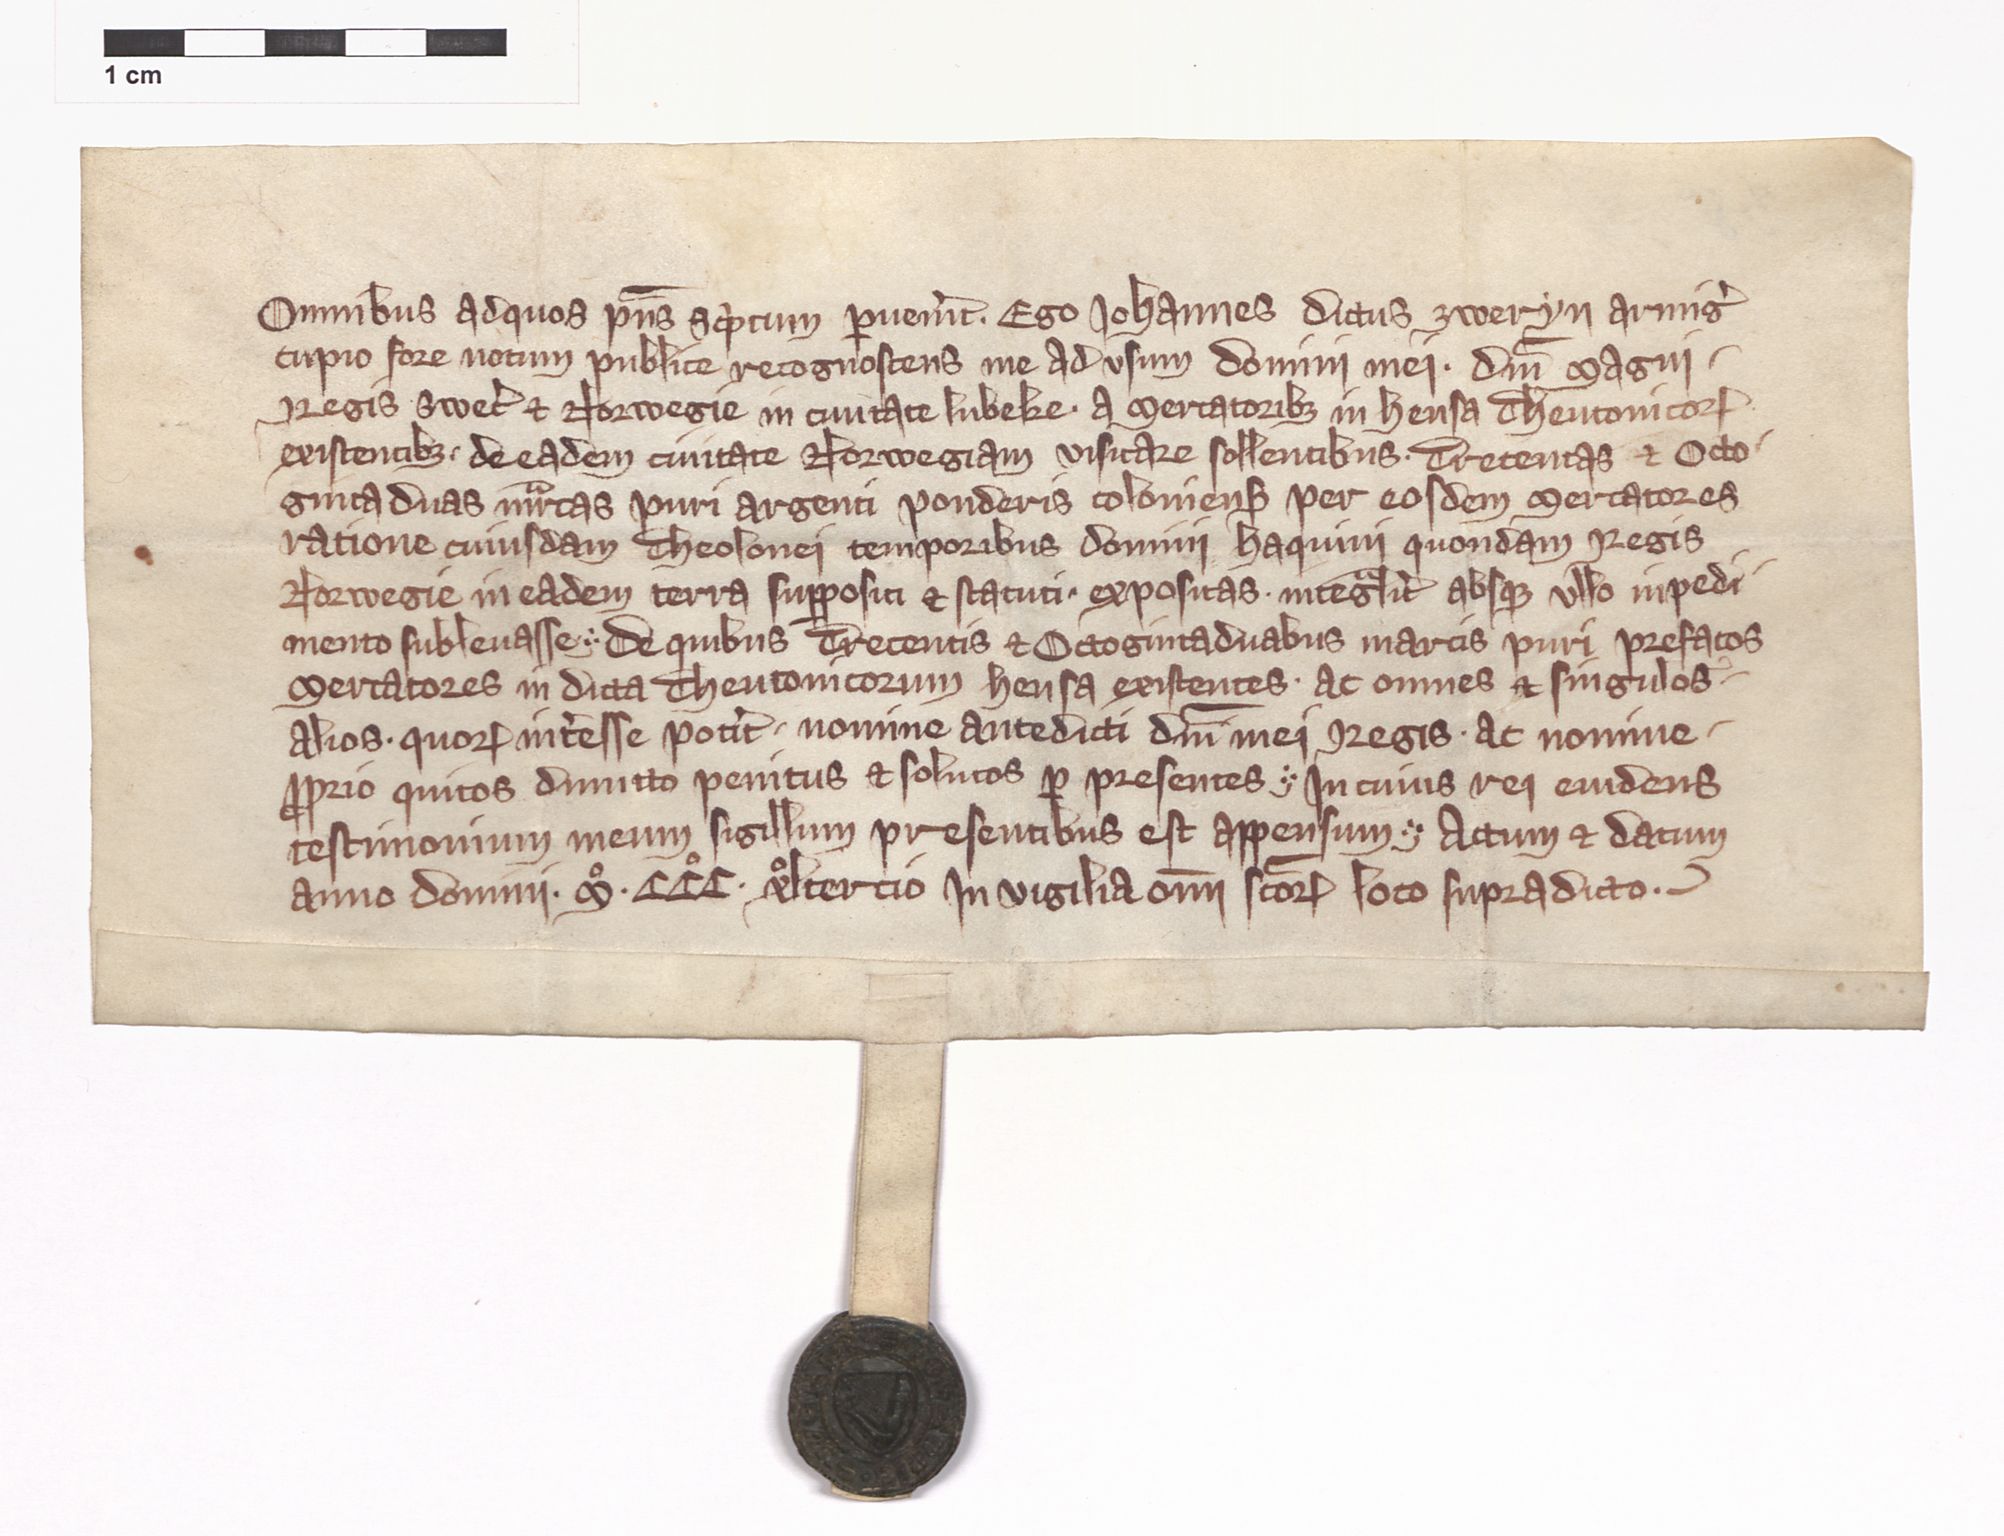 1 cm
Omnibus adquos pn̄s scptum ꝑuen̄it. Ego Johannes dictus zweryn armig̉
cupio fore notum publice recognoscens me ad vsum domini mei. dn̄i Magni -
Regis Swec̉ et Norwegie in ciuitate lubeke. a Mercatoribꝫ in hensa Theutonicoꝝ
existentibꝫ. de eadem ciuitate Norwegiam visitare sollentibus. Trecentas et Octo-
gintaduas mᷓrcas puri argenti ponderis coloniens̄ per eosdem Mercatores
ratione cuiusdam Theolonei temporibus domini haquini quondam Regis
Norwegie in eadem terra suppositi et statuti. expositas. integᷓlit̉ absqꝫ vllo inpedi-
mento subleuasse. De quibus Trecentis et Octogintaduabus marcis puri prefatos
Mercatores in dicta Theutonicorum hensa existentes. ac omnes et singulos -
alios. quoꝝ int̉esse pot̉it. nomine antedicti dn̄i mei Regis. ac nomine -
ꝓprio quitos dimitto penitus et solutos ꝑ presentes. In cuius rei euidens
testimonium meum sigillum presentibus est appensum. Actum et datum
anno domini. Mº. CCCº. xºltercio In vigilia om̄i sc̄oꝝ loco supradicto.